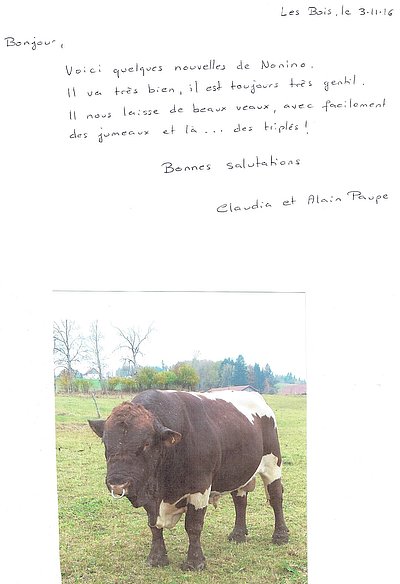 Les Bois, le 3-11-16
Bonjour,
Voici quelques nouvelles de Nonino.
Il va très bien, il est toujours très gentil.
Il nous laisse de beaux veaux, avec facilement
des jumeaux et là... des triplés!
Bonnes salutations
Claudia et Alain Paupe